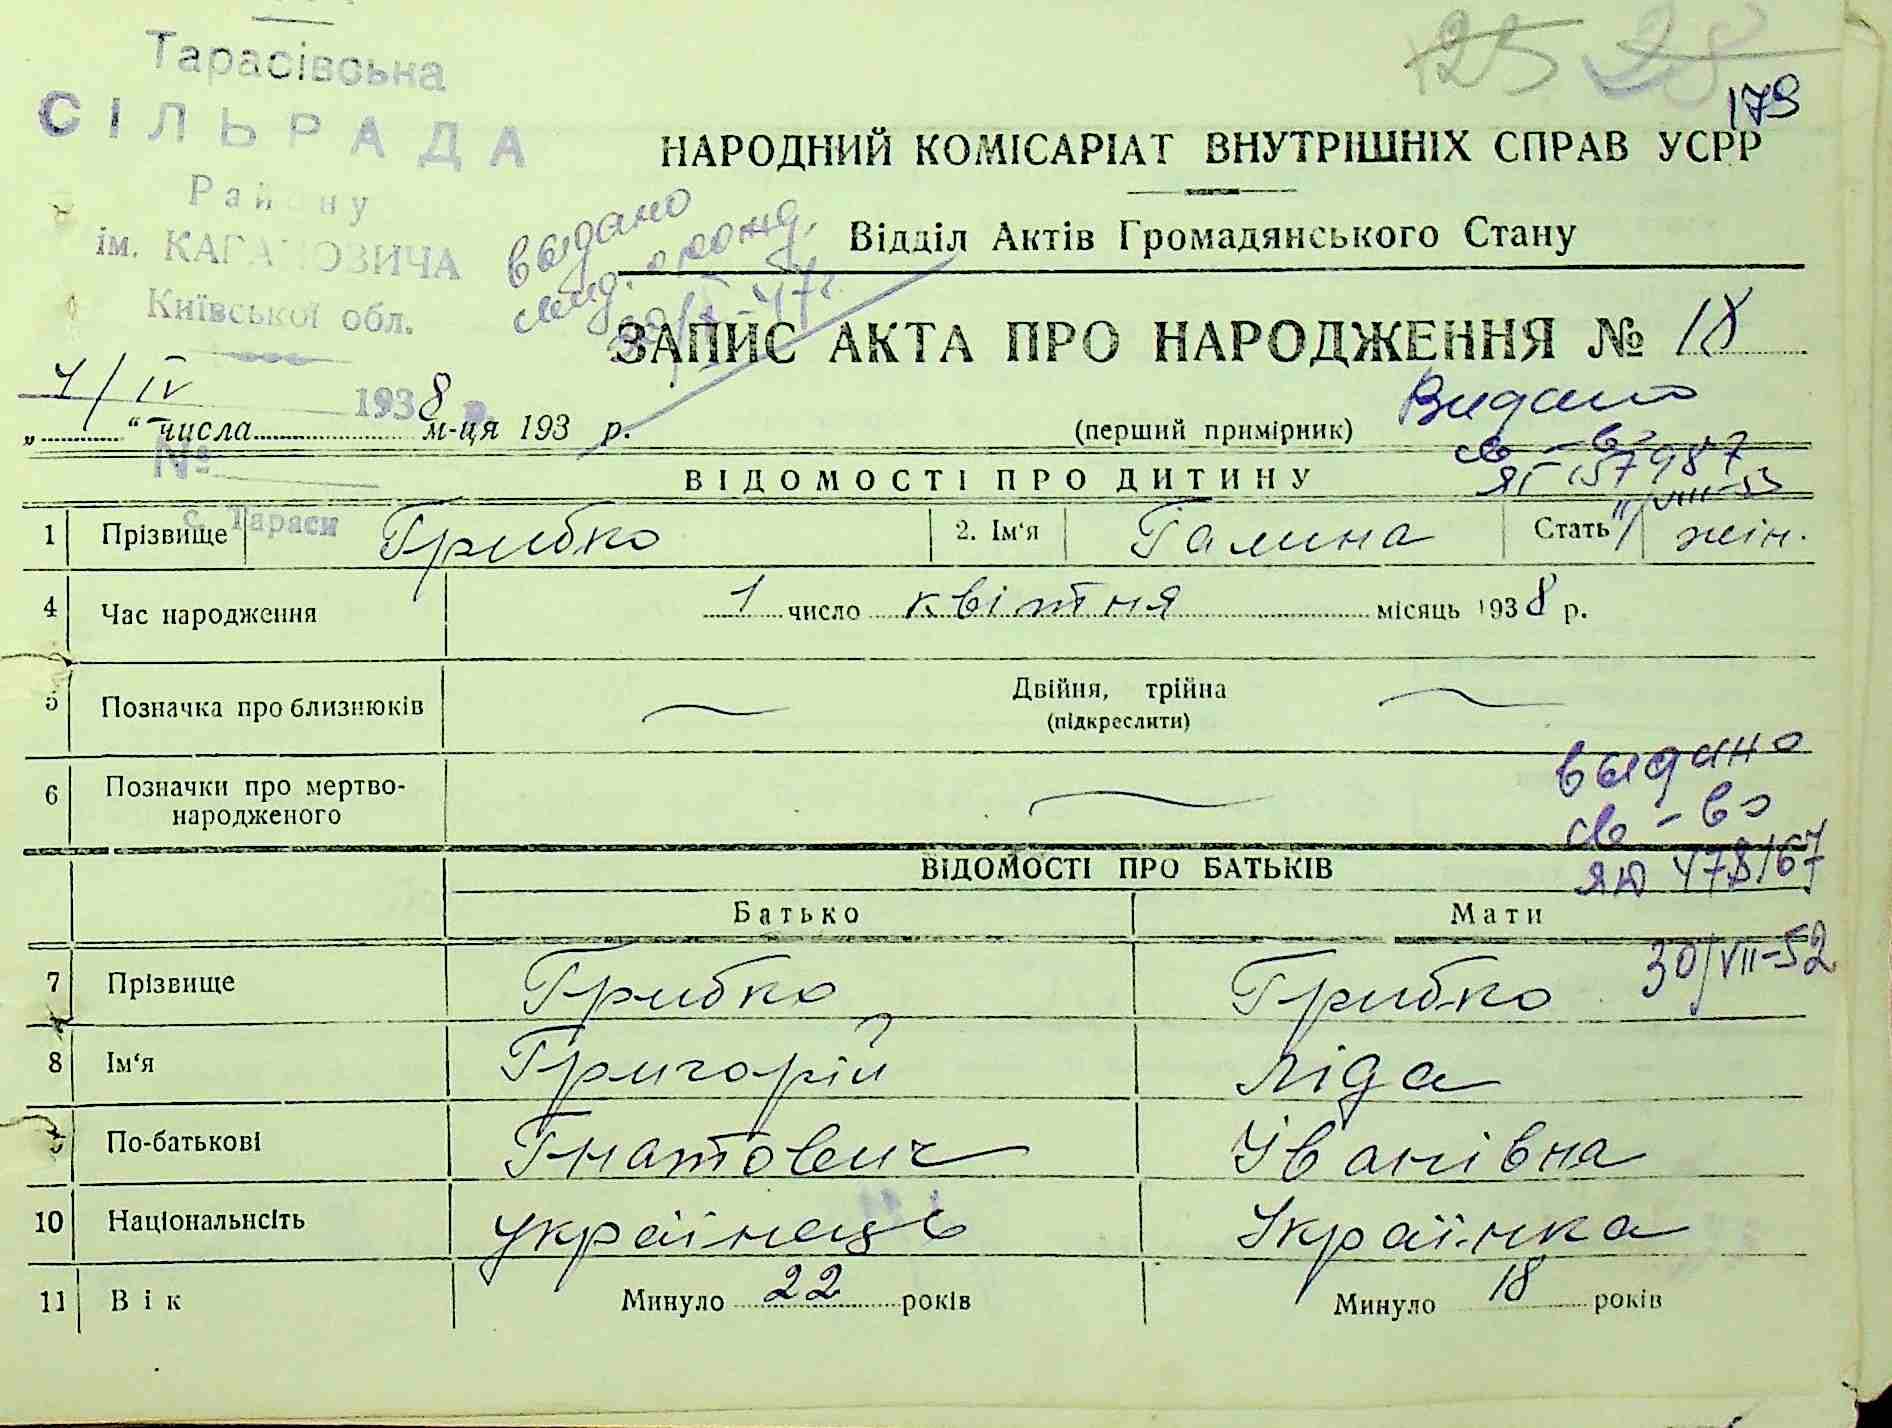 Тарасівська
СІЛЬРАДА
Району
ім. КАГАНОВИЧА
Київської обл.
25 28
179
НАРОДНИЙ КОМІСАРІАТ ВНУТРІШНІХ СПРАВ УСРР
Відділ Актів Громадянського Стану
выдано
рожд.
ЗАПИС АКТА ПРО НАРОДЖЕННЯ № 18
IV 1938 р.
„ “ числа м-ця 193 р.
(перший примірник)
Видано
св-во
ЯГ 157987
VIII-53
№
с. Тараси
ВІДОМОСТІ ПРО ДИТИНУ
1 Прізвище Грибко 2. Ім‘я Галина Стать жін.
4 Час народження 1 число квітня місяць 1938 р.
5 Позначка про близнюків Двійня, трійна
(підкреслити)
6 Позначки про мертво-
народженого
выдано
св-во
ЯЮ 478167
30/VII-52
ВІДОМОСТІ ПРО БАТЬКІВ
Батько Мати
7 Прізвище Грибко Грибко
8 Ім‘я Григорій Ліда
9 По-батькові Гнатович Іванівна
10 Національнсіть українець Українка
11 Вік Минуло 22 років Минуло 18 років